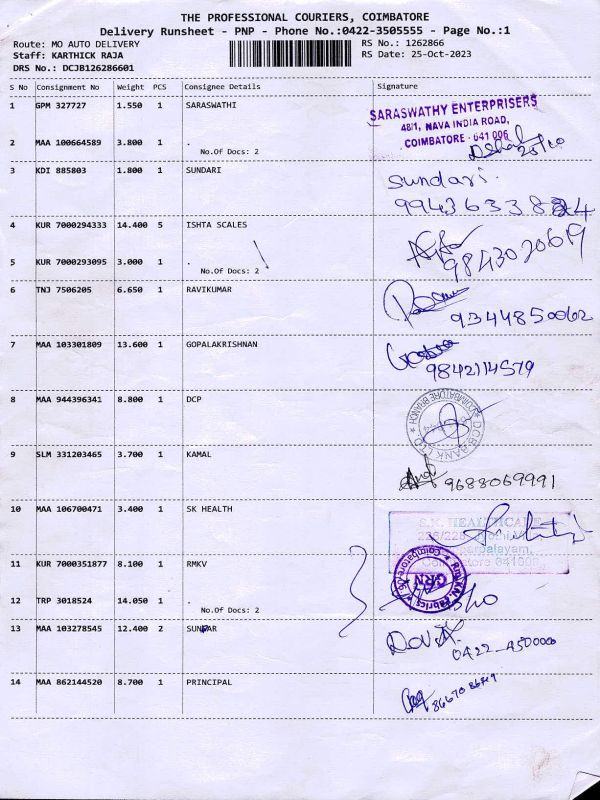 THE PROFESSIONAL COURIERS, COIMBATORE
Delivery Runsheet - PNP - Phone No.:0422-3505555 - Page No.:1
Route: MO AUTO DELIVERY
Staff: KARTHICK RAJA
DRS No.: DCJB126286601
RS No.: 1262866
RS Date: 25-Oct-2023
S No Consignment No Weight PCS Consignee Details Signature
1 GPM 327727 1.550 1 SARASWATHI
SARASWATHY ENTERPRISERS
48/1, NAVA INDIA ROAD,
COIMBATORE - 641 006
25/10
2 MAA 100664589 3.800 1 .
No.Of Docs: 2
3 KDI 885803 1.800 1 SUNDARI
Sundari.
4 KUR 7000294333 14.400 5 ISHTA SCALES
9843020619
5 KUR 7000293095 3.000 1 .
No.Of Docs: 2
6 TNJ 7506205 6.650 1 RAVIKUMAR
9344850062
7 MAA 103301809 13.600 1 GOPALAKRISHNAN
9842114579
8 MAA 944396341 8.800 1 DCP
DCB BANK LTD
COIMBATORE BRANCH
9 SLM 331203465 3.700 1 KAMAL
9688069991
10 MAA 106700471 3.400 1 SK HEALTH
S.K. HEALTHCARE
11 KUR 7000351877 8.100 1 RMKV
GRN
12 TRP 3018524 14.050 1 .
No.Of Docs: 2
13 MAA 103278545 12.400 2 SUNDAR
14 MAA 862144520 8.700 1 PRINCIPAL